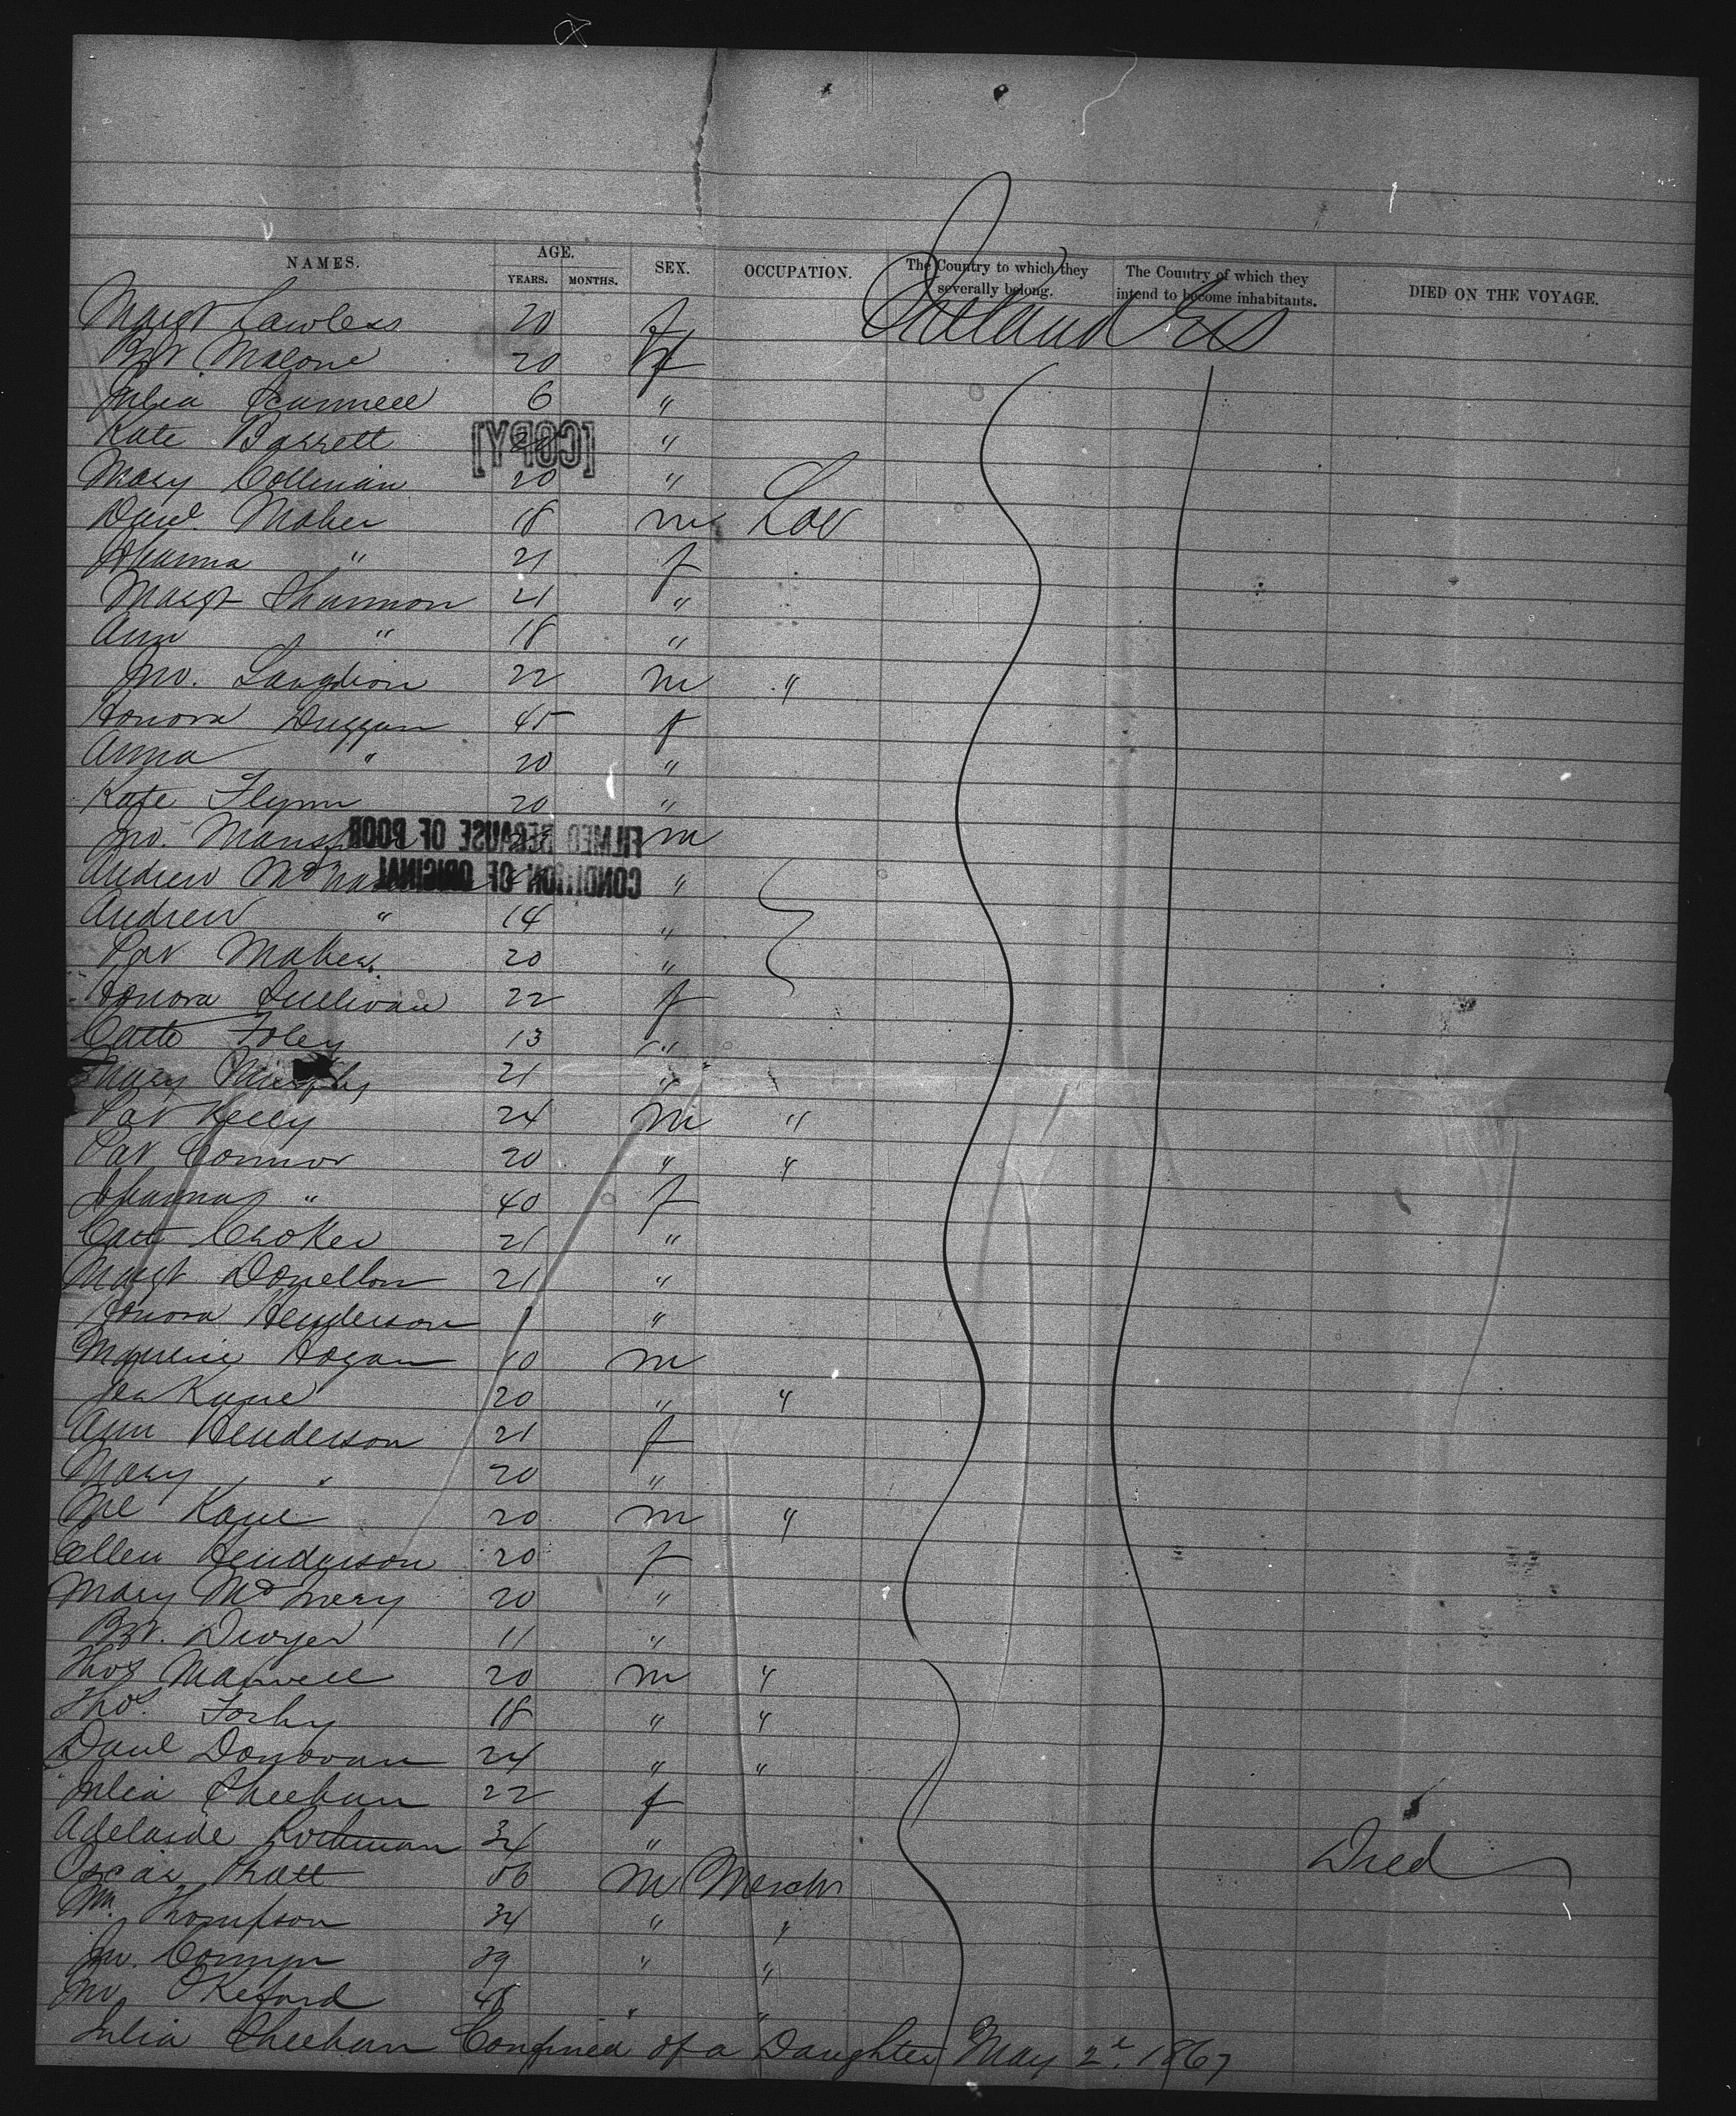 NAMES. AGE. YEARS. MONTHS. SEX. OCCUPATION. The Country to which they severally belong. The Country of which they intend to become inhabitants. DIED ON THE VOYAGE.
Margt Lawless 20 f Ireland U S
Brt Malone 20 f
Julia Scannell 6 "
[COPY]
Kate Barrett "
Mary Colleman 20 "
Danl. Maher 18 m Lab
Johanna " 21 f
Margt Shannon 21 "
Ann " 18 "
Jno. Langdion 22 m "
Honora Duggan 45 f
Anna " 20 "
Kate Flynn 20 "
FILMED BECAUSE OF POOR
CONDITION OF ORIGINAL
Jno. m
Andrew "
Andrew " 14 "
Pat Maher. 20 "
Honora Sullivan 22 f
Cath Foley 13 "
Mary Murphy 21 "
Pat Kelly 24 m "
Pat Connor 20 " "
Johanna " 40 f
Cath Croker 21 "
Margt Donellon 21 "
Honora Henderson 1 "
Maurice Hogan 10 m
Kane 20 " "
Ann Henderson 21 f
Mary " 20 "
Ml Kane 20 m "
Ellen Henderson 20 f
Mary 20 "
Brt. Dwyer 11 "
Thos Maxwell 20 m "
Thos. 18 " "
Danl Donovan 24 " "
Julia Sheehan 22 f
Adelaide 34 " Died
Oscar Pratt 36 m Mercht
Wm. Thompson 34 " "
Jno. 39 " "
Jno. OKeford 48 " "
Julia Sheehan Confined of a Daughter May 2d. 1867